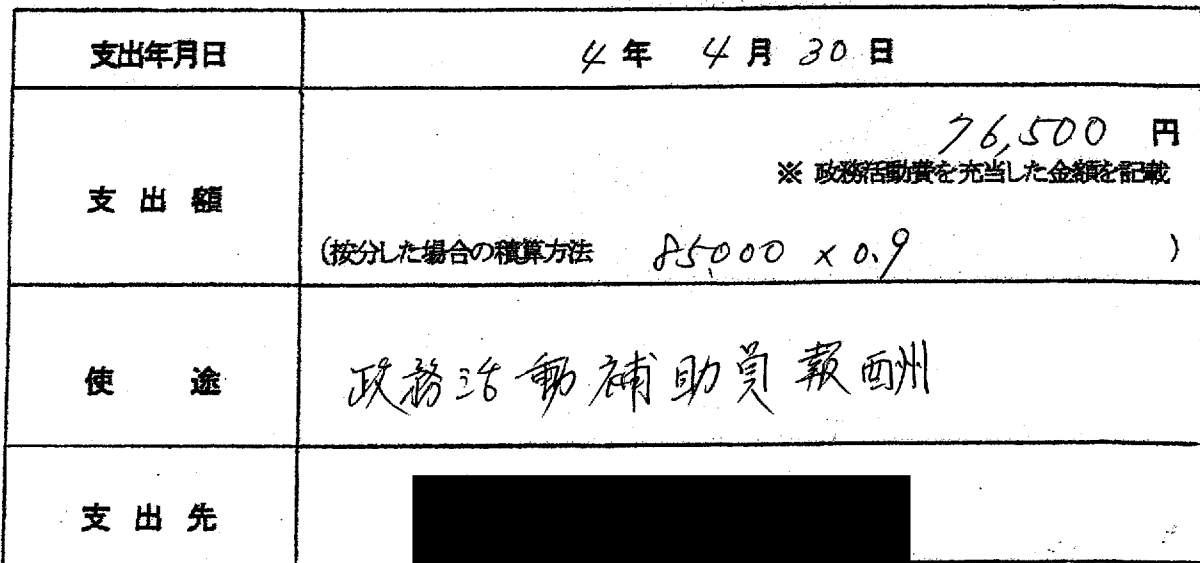 支出年月日 4年 4月30日
76,500 円
※ 政務活動費を充当した金額を記載
支 出 額
(按分した場合の積算方法 85,000 × 0.9 )
使 途 政務活動補助員報酬
支 出 先